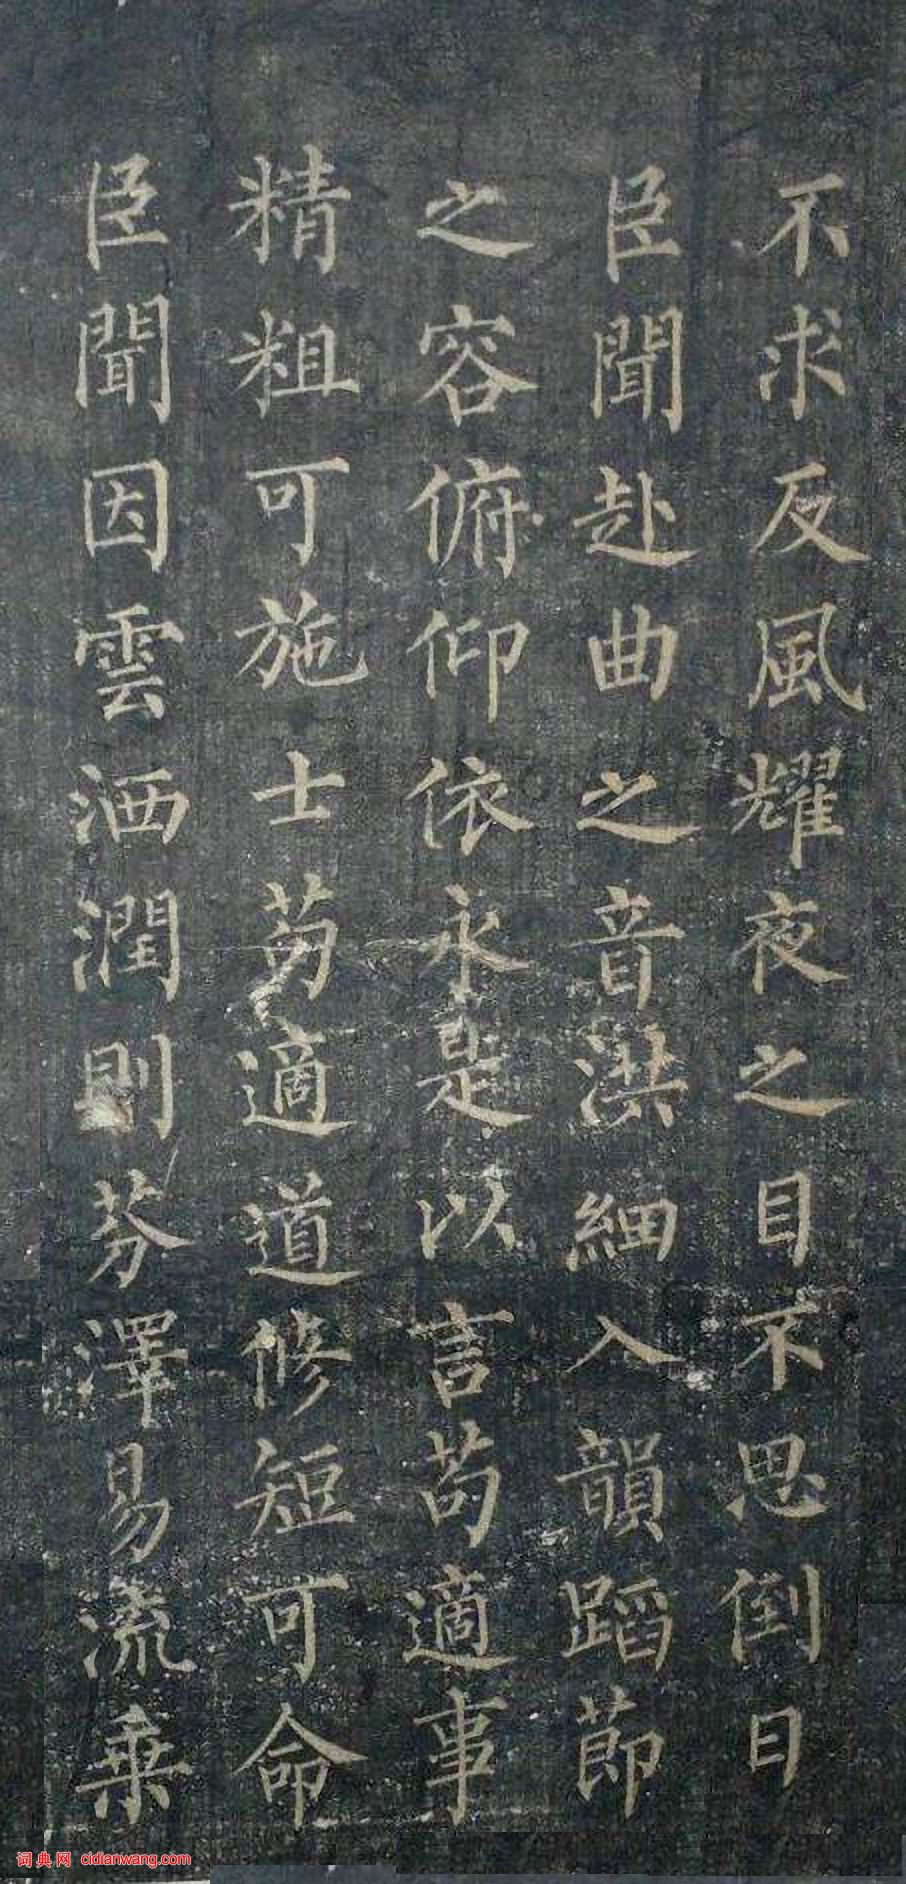 不求反風耀夜之目不思倒日
臣聞赴曲之音洪細入韻蹈節
之容俯仰依永是以言苟適事
精粗可施士苟適道修短可命
臣聞因雲洒潤則芬澤易流乗
词典网 cidianwang.com